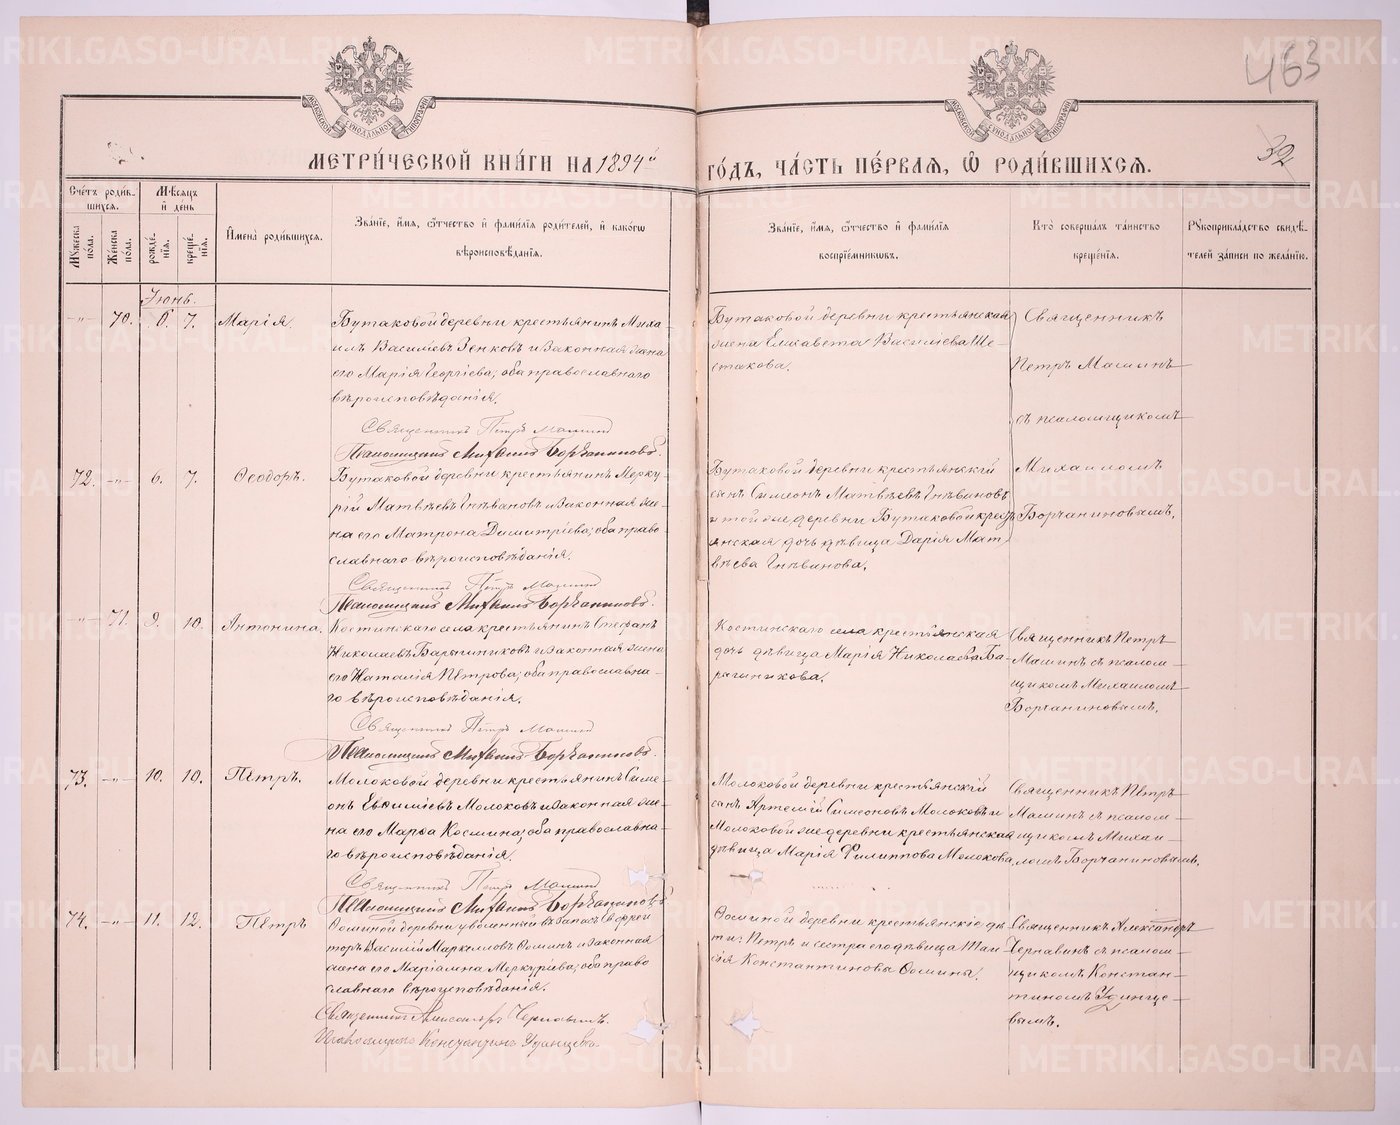 463
32
МОСКОВСКОЙ СѴНОДАЛЬНОЙ ТИПОГРАФІИ
МОСКОВСКОЙ СѴНОДАЛЬНОЙ ТИПОГРАФІИ
МЕТРИ́ЧЕСКОЙ КНИ́ГИ НА 1894й ГО́ДЪ, ЧА́СТЬ ПЕ́РВАЯ, Ѽ РОДИ́ВШИХСѦ.
Сче́тъ роди́в-
шихсѧ.
Мѹжеска по́ла.
Же́нска по́ла.
Мѣ́сѧцъ
и҆ де́нь
рожде́-
нїѧ.
креще́-
нїѧ.
И҆мена̀ роди́вшихсѧ.
Зва́нїе, и҆́мѧ, ѻ҆́тчество и҆ фамі́лїѧ роди́телей, и҆ како́гѡ
вѣроисповѣ́данїѧ.
Зва́нїе, и҆́мѧ, ѻ҆́тчество и҆ фамі́лїѧ
воспрїе́мникѡвъ.
Кто̀ соверша́лъ та́инство
креще́нїѧ.
Рꙋкоприкла́дство свидѣ́-
телей за́писи по жела́нїю.
Іюнь.
-"- 70. 6. 7. Марія.
Бутаковой деревни крестьянинъ Миха-
илъ Василіевъ Зенковъ и законная жена
его Марія Георгіева; оба православнаго
вѣроисповѣданія.
Священникъ Петръ Машинъ
Псаломщикъ Михаилъ Борчаниновъ.
Бутаковой деревни крестьянская
жена Елисавета Василіева Ше-
стакова.
Священникъ
Петръ Машинъ
съ псаломщикомъ
Михаиломъ
Борчаниновымъ.
72. -"- 6. 7. Ѳеодоръ.
Бутаковой деревни крестьянинъ Мерку-
рій Матвѣевъ Гнѣвановъ и законная же-
на его Матрона Димитріева; оба право-
славнаго вѣроисповѣданія.
Священникъ Петръ Машинъ
Псаломщикъ Михаилъ Борчаниновъ.
Бутаковой деревни крестьянскій
сынъ Симеонъ Матвѣевъ Гнѣвановъ
и той же деревни Бутаковой кресть
янская дочь дѣвица Дарія Мат-
вѣева Гнѣванова.
-"- 71. 9. 10. Антонина.
Костинскаго села крестьянинъ Стефанъ
Николаевъ Барышниковъ и законная жена
его Наталія Петрова; оба православна-
го вѣроисповѣданія.
Священникъ Петръ Машинъ
Псаломщикъ Михаилъ Борчаниновъ.
Костинскаго села крестьянская
дочь дѣвица Марія Николаева Ба-
рышникова.
Священникъ Петръ
Машинъ съ псалом-
щикомъ Михаиломъ
Борчаниновымъ.
73. -"- 10. 10. Петръ.
Молоковой деревни крестьянинъ Симе-
онъ Евѳиміевъ Молоковъ и законная же-
на его Марѳа Космина; оба православна-
го вѣроисповѣданія.
Священникъ Петръ Машинъ
Псаломщикъ Михаилъ Борчаниновъ
Молоковой деревни крестьянскій
сынъ Артемій Симеоновъ Молоковъ и
Молоковой же деревни крестьянская
дѣвица Марія Филиппова Молокова.
Священникъ Петръ
Машинъ съ псалом-
щикомъ Михаи-
ломъ Борчаниновымъ.
74. -"- 11. 12. Петръ
Ѳоминой деревни уволенный въ запасъ ефрей
торъ Василій Маркелловъ Ѳоминъ и законная
жена его Маріамна Меркуріева; оба право
славнаго вѣроисповѣданія.
Священникъ Александръ Чернавинъ.
Псаломщикъ Константинъ Удинцевъ.
Ѳоминой деревни крестьянскіе дѣ-
ти: Петръ и сестра его дѣвица Таи-
сія Константиновы Ѳомины.
Священникъ Александръ
Чернавинъ съ псалом-
щикомъ Констан-
тиномъ Удинце-
вымъ.
METRIKI.GASO-URAL.RU